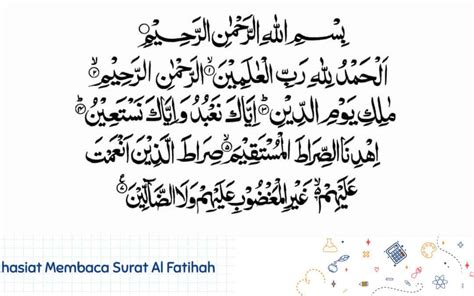 بِسْمِ اللهِ الرَّحْمٰنِ الرَّحِيْمِ
اَلْحَمْدُ لِلهِ رَبِّ الْعٰلَمِيْنَ ۙ الرَّحْمٰنِ الرَّحِيْمِ ۙ
مٰلِكِ يَوْمِ الدِّيْنِ ۗ اِيَّاكَ نَعْبُدُ وَاِيَّاكَ نَسْتَعِيْنُ ۗ
اِهْدِنَا الصِّرَاطَ الْمُسْتَقِيْمَ ۙ صِرَاطَ الَّذِيْنَ اَنْعَمْتَ
عَلَيْهِمْ ۙ غَيْرِ الْمَغْضُوْبِ عَلَيْهِمْ وَلَا الضَّاۤلِّيْنَ
hasiat Membaca Surat Al Fatihah